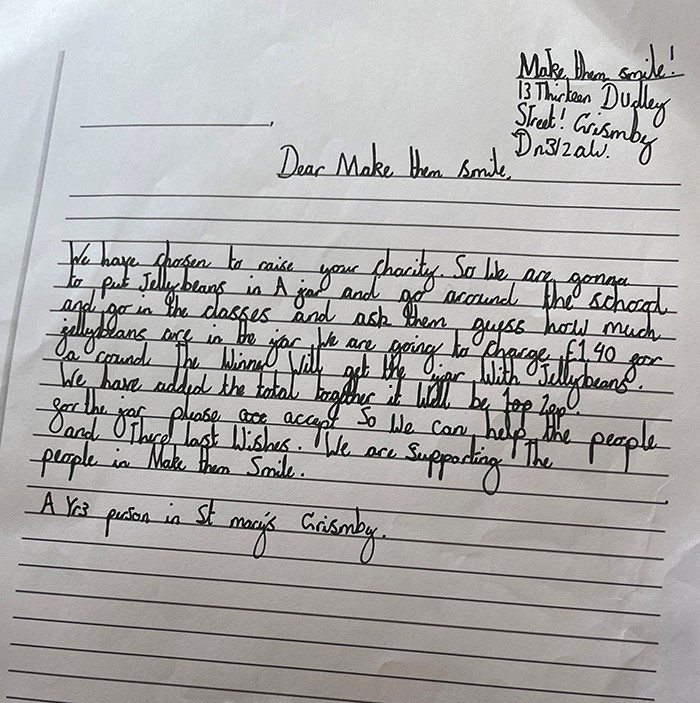 Make them smile!
13 Thirteen Dudley
Street! Grismby
Dn312aw.
Dear Make them smile,
We have chosen to raise your charity. So We are gonna
to put Jellybeans in A jar and go around the school
and go in the classes and ask them guess how much
jellybeans are in the jar We are going to charge £1.40 for
a round The Winner Will get the jar With Jellybeans.
We have added the total together it Will be 20p.
for the jar please accept So We can help the people
and There last Wishes. We are Supporting The
people in Make them Smile.
A Yr3 person in St mary's Grismby.